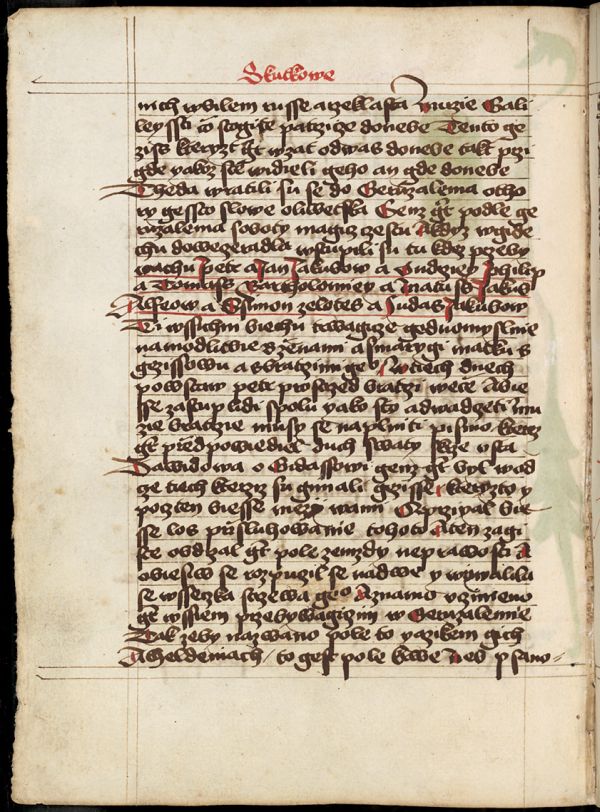 Skutkowe
nich w bilem russe a rzekla sta Muzie Gali
leyssci co stogite patrzize do nebe Tento ge
ziss kteryzt gt wzat od was do nebe tak przi
gde yakoz ste widieli geho an gde do nebe
Theda wratili su se do Geruzalema ot ho
ry gessto slowe oliwetska Genz gt podle ge
ruzalema soboty magicz czestu A kdyz w gide
chu do weczeradla wstupili su tu kdez przeby
wachu Petr a Jan Jakubow a Andrzey Philip
a Tomass Bartholomiey a Matuss Jakub
Alfeow a Ssimon zelotes a Judas Jakubow
Ti wssichni biechu trwagicze gednomyslnie
na modlitwie s zenami a s marygi matku
gezissowu a s bratrzimi geho W tiech dnech
powstaw petr prostrzed bratrzi wece Bie
sse zastup lidi spolu yako sto a dwadzeti Mu
zie bratrzie musy se naplniti pismo kterez
gt przed powiediel duch swaty skrze usta
Dawidowa o Gidassowi genz gt byl wod
cze tiech kterziz su gimali gezisse kteryzto y
poczten biesse mezy wami
sse los prisluhowanie tohoto A ten zagi
ste obdrzal gt pole ze mzdy neprawosti A
obiesiw se rozpuczil se na dwe y wywalila
se wssecka strzewa geho A znamo uczineno
gt wssiem przebywagiczim w Geruzalemie
Tak zeby nazwano pole to yazikem gich
Acheldemach / to gest pole krwe Neb psano